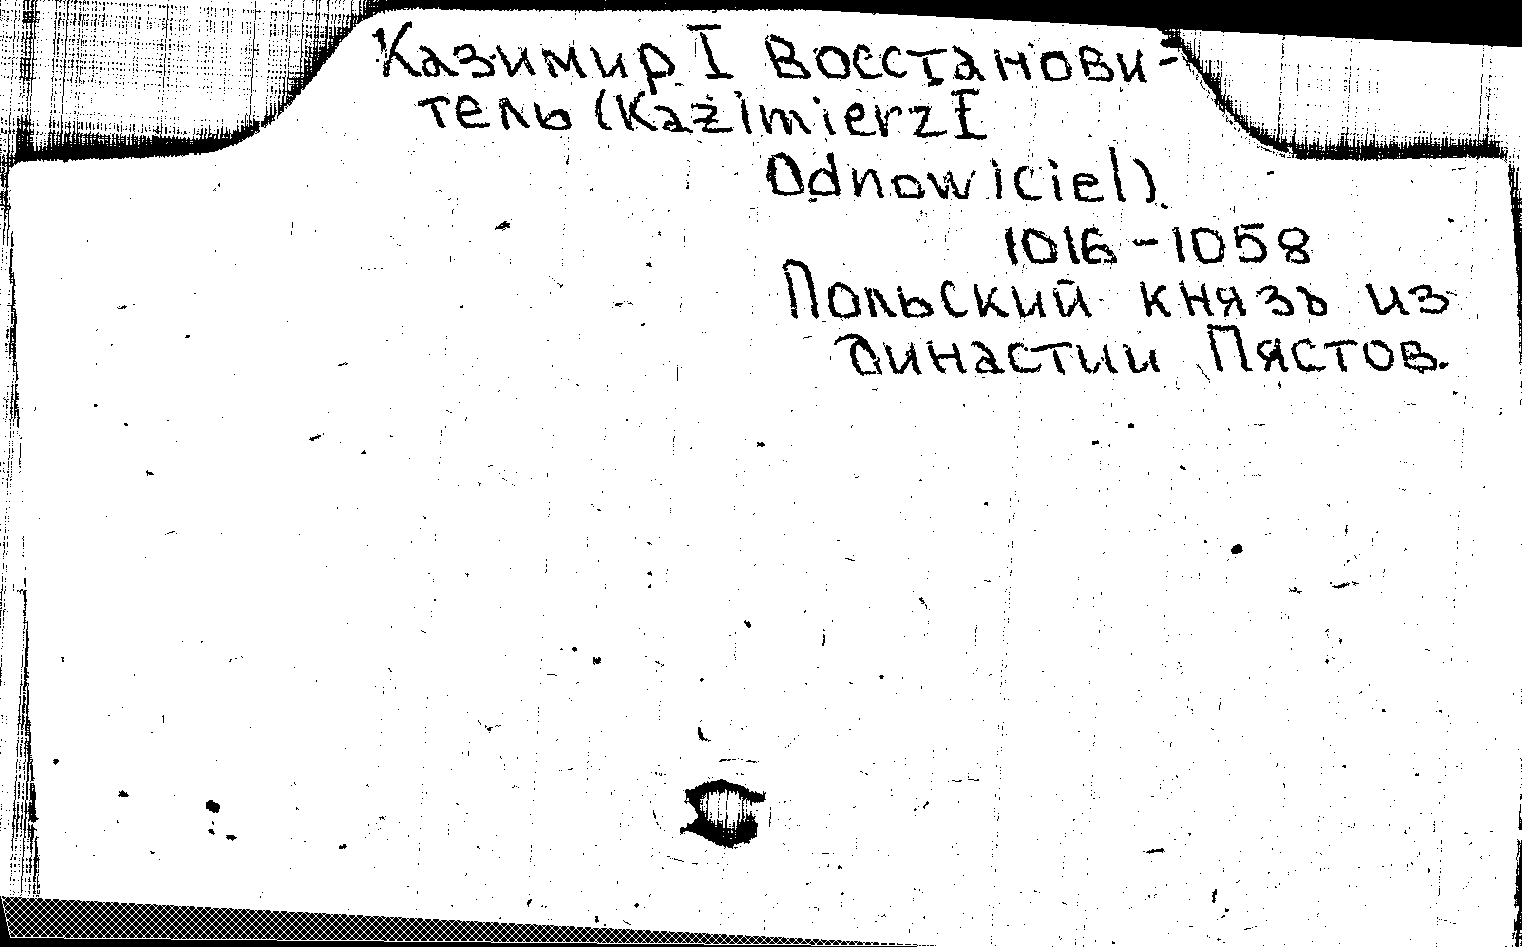 Казимир I Восстанови-
тель (Kazimierz I
Odnowiciel)
1016-1058
Польский князь из
династии Пястов.